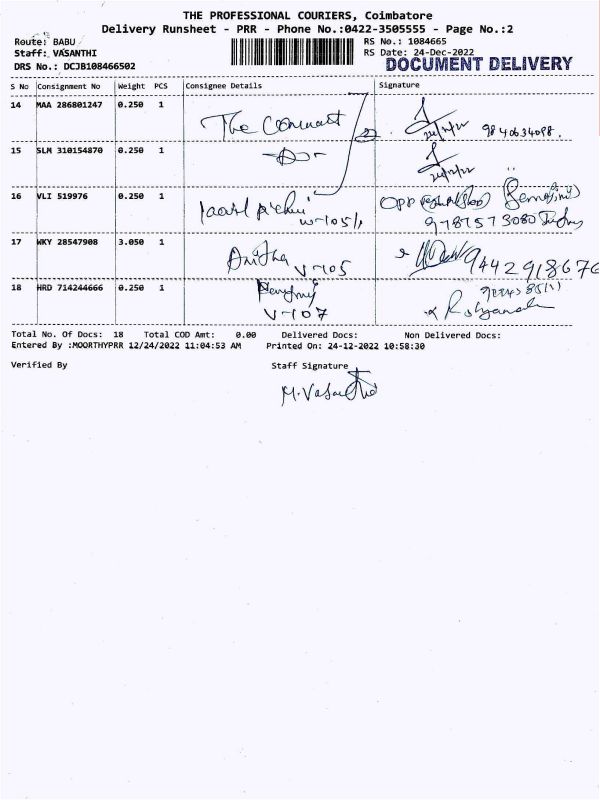 THE PROFESSIONAL COURIERS, Coimbatore
Delivery Runsheet - PRR - Phone No.:0422-3505555 - Page No.:2
Route: BABU
RS No.: 1084665
Staff: VASANTHI
RS Date: 24-Dec-2022
DRS No.: DCJB108466502
DOCUMENT DELIVERY
S No Consignment No Weight PCS Consignee Details Signature
14 MAA 286801247 0.250 1 The 24/12/22 9840634098.
15 SLM 310154870 0.250 1 -Do- 24/12/22
16 VLI 519976 0.250 1 OPP
9787573080
17 WKY 28547908 3.050 1 Anitha V-105
18 HRD 714244666 0.250 1 V-107
Total No. Of Docs: 18 Total COD Amt: 0.00 Delivered Docs: Non Delivered Docs:
Entered By :MOORTHYPRR 12/24/2022 11:04:53 AM Printed On: 24-12-2022 10:58:30
Verified By Staff Signature
M. Vasantha